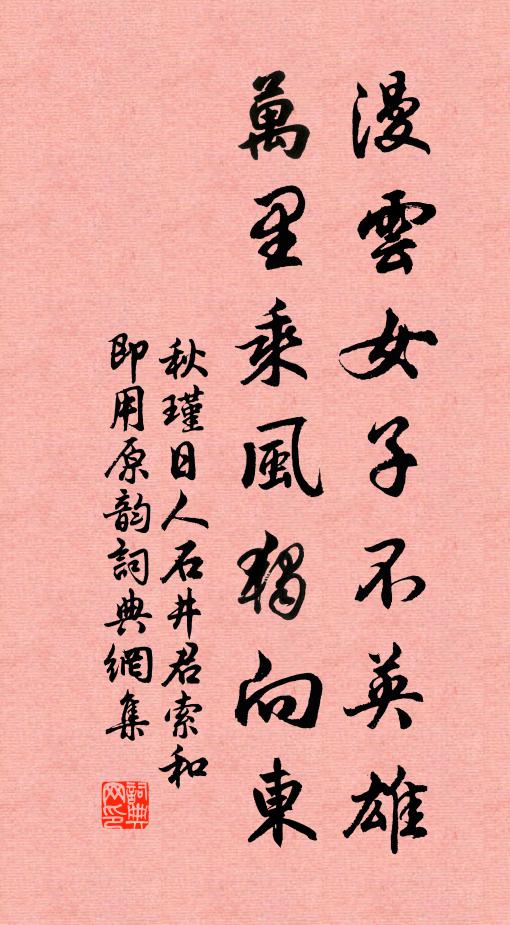 漫雲女子不英雄
萬里乘風獨向東
秋瑾日人石井君索和
即用原韵詞典網集
詞典网印